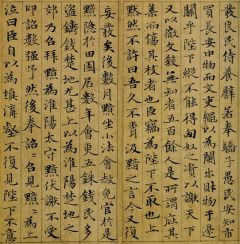 發良民侍養譬若奉驕子愚民安知市
買長安中物而文吏繩以為闌出財物于邊
關乎陛下縱不能得匈奴之資以謝天下
又以微文殺無知者五百餘人是所謂庇其
葉而傷其枝者也臣竊為陛下不取也上
默然不許曰吾久不聞汲黯之言今又復
妄發矣後數月黯坐小法會赦免官於是
黯隱於田園居數年會更五銖錢民多
盜鑄錢楚地尤甚上以為淮陽楚地之
郊乃召拜黯為淮陽太守黯伏謝不受
印詔數彊予然後奉詔詔召見黯黯為上
泣曰臣自以為填溝壑不復見陛下不意